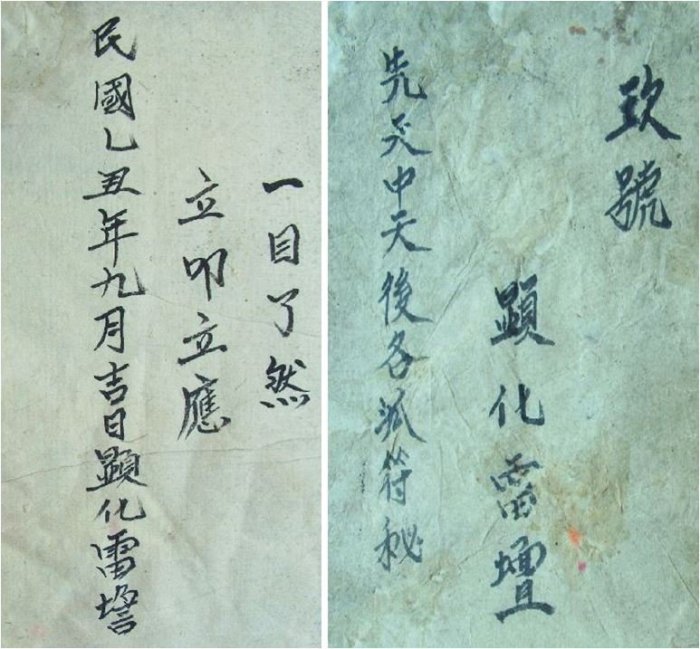 玖號
顕化雷壇
先天中天後各派符秘
一目了然
立叩立應
民國乙丑年九月吉日顕化雷壇